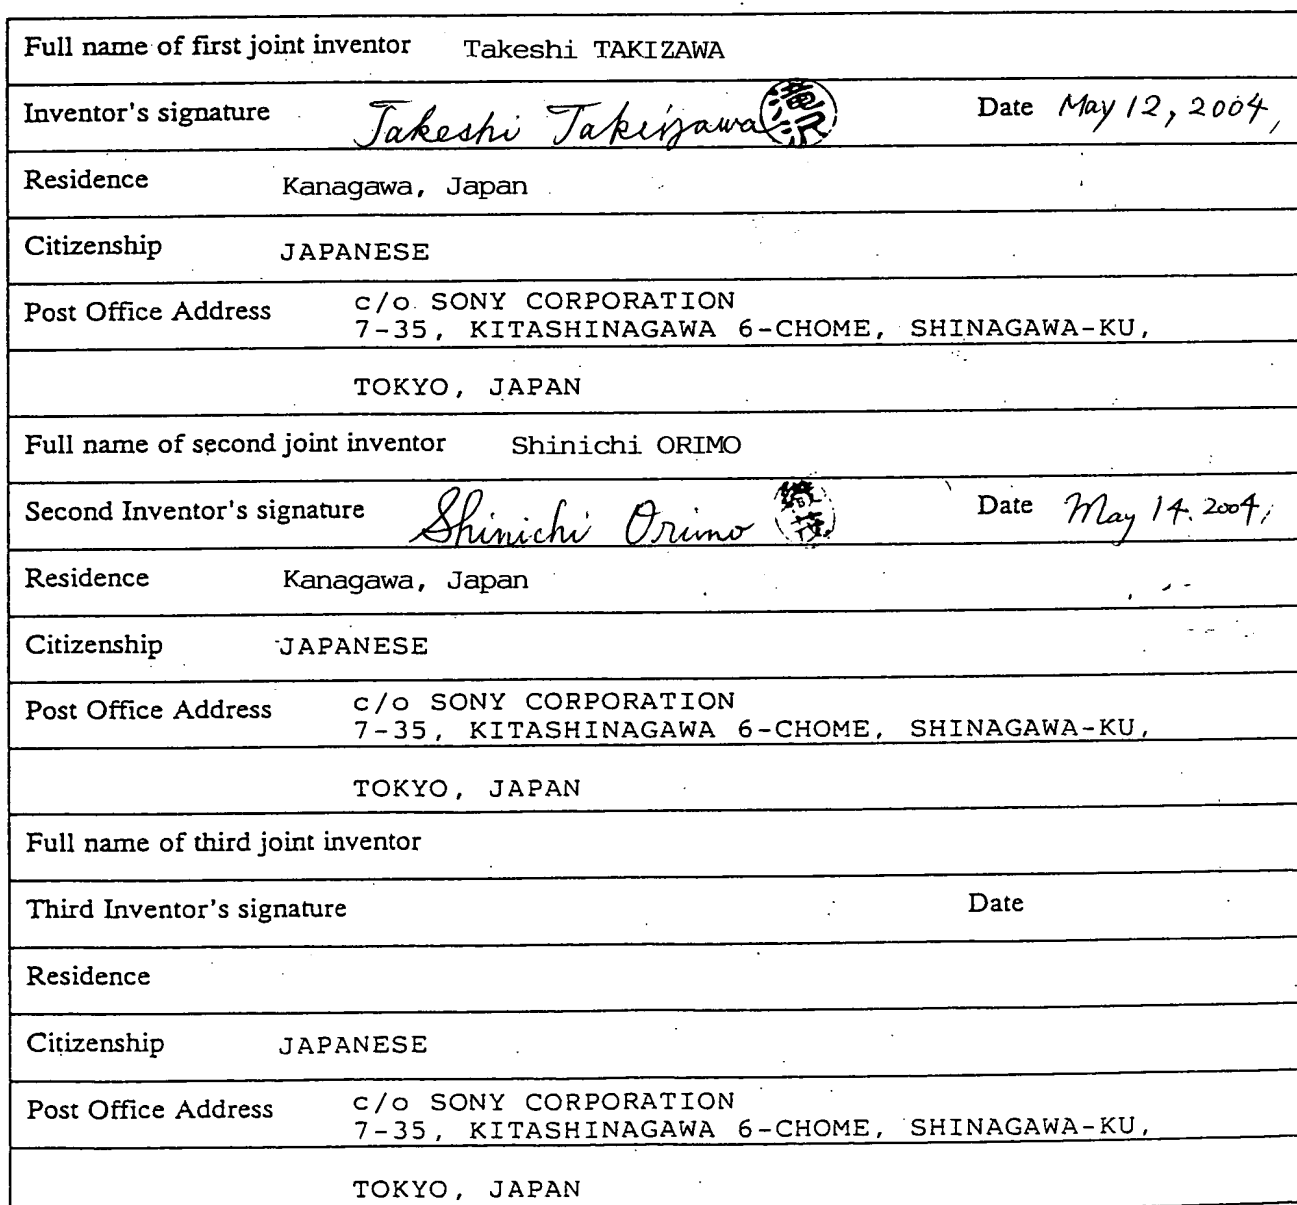 Full name of first joint inventor Takeshi TAKIZAWA
Inventor's signature Takeshi Takizawa 滝沢 Date May 12, 2004,
Residence Kanagawa, Japan
Citizenship JAPANESE
Post Office Address c/o SONY CORPORATION
7-35, KITASHINAGAWA 6-CHOME, SHINAGAWA-KU,
TOKYO, JAPAN
Full name of second joint inventor Shinichi ORIMO
Second Inventor's signature Shinichi Orimo Date May 14. 2004,
Residence Kanagawa, Japan
Citizenship JAPANESE
Post Office Address c/o SONY CORPORATION
7-35, KITASHINAGAWA 6-CHOME, SHINAGAWA-KU,
TOKYO, JAPAN
Full name of third joint inventor
Third Inventor's signature Date
Residence
Citizenship JAPANESE
Post Office Address c/o SONY CORPORATION
7-35, KITASHINAGAWA 6-CHOME, SHINAGAWA-KU,
TOKYO, JAPAN